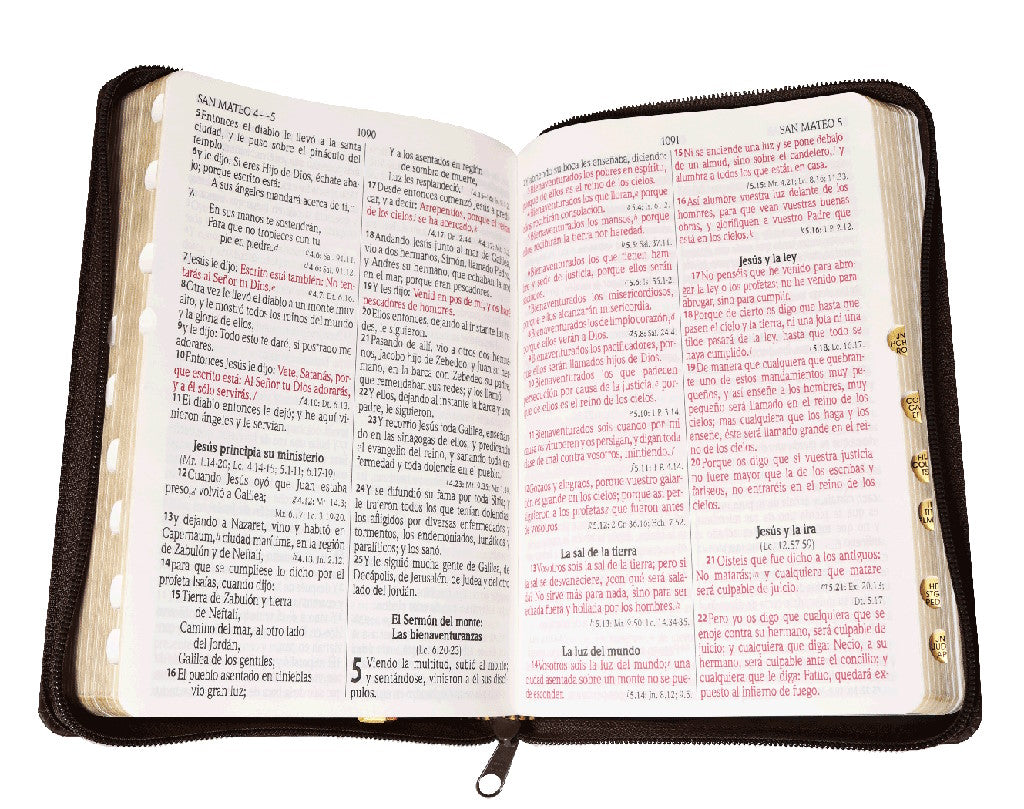 SAN MATEO 4—5
1090
5Entonces el diablo le llevó a la santa
ciudad, y le puso sobre el pináculo del
templo,
6y le dijo: Si eres Hijo de Dios, échate aba-
jo; porque escrito está:
A sus ángeles mandará acerca de ti,
y,
En sus manos te sostendrán,
Para que no tropieces con tu
pie en piedra.
7Jesús le dijo: Escrito está también: No ten-
tarás al Señor tu Dios.
8Otra vez le llevó el diablo a un monte muy
alto, y le mostró todos los reinos del mundo
y la gloria de ellos,
9y le dijo: Todo esto te daré, si postrado me
adorares.
10Entonces Jesús le dijo: Vete, Satanás, por-
que escrito está: Al Señor tu Dios adorarás,
y a él sólo servirás.
11El diablo entonces le dejó; y he aquí vi-
nieron ángeles y le servían.
Jesús principia su ministerio
(Mr. 1.14-20; Lc. 4.14-15; 5.1-11; 6.17-19)
12Cuando Jesús oyó que Juan estaba
preso, volvió a Galilea;
13y dejando a Nazaret, vino y habitó en
Capernaum, ciudad marítima, en la región
de Zabulón y de Neftalí,
14para que se cumpliese lo dicho por el
profeta Isaías, cuando dijo:
15Tierra de Zabulón y tierra
de Neftalí,
Camino del mar, al otro lado
del Jordán,
Galilea de los gentiles;
16El pueblo asentado en tinieblas
vio gran luz;
Y a los asentados en región
de sombra de muerte,
Luz les resplandeció.
17Desde entonces comenzó Jesús a predi-
car, y a decir: Arrepentíos, porque el reino
de los cielos se ha acercado.
18Andando Jesús junto al mar de Galilea,
vio a dos hermanos, Simón, llamado Pedro,
y Andrés su hermano, que echaban la red
en el mar; porque eran pescadores.
19Y les dijo: Venid en pos de mí, y os haré
pescadores de hombres.
20Ellos entonces, dejando al instante las re-
des, le siguieron.
21Pasando de allí, vio a otros dos herma-
nos, Jacobo hijo de Zebedeo, y Juan su her-
mano, en la barca con Zebedeo su padre,
que remendaban sus redes; y los llamó.
22Y ellos, dejando al instante la barca y a su
padre, le siguieron.
23Y recorrió Jesús toda Galilea, enseñan-
do en las sinagogas de ellos, y predicando
el evangelio del reino, y sanando toda en-
fermedad y toda dolencia en el pueblo.
24Y se difundió su fama por toda Siria; y
le trajeron todos los que tenían dolencias,
los afligidos por diversas enfermedades y
tormentos, los endemoniados, lunáticos y
paralíticos; y los sanó.
25Y le siguió mucha gente de Galilea, de
Decápolis, de Jerusalén, de Judea y del otro
lado del Jordán.
El Sermón del monte:
Las bienaventuranzas
(Lc. 6.20-23)
5 Viendo la multitud, subió al monte;
y sentándose, vinieron a él sus discí-
pulos.
1091
SAN MATEO 5
2Y abriendo su boca les enseñaba, diciendo:
3Bienaventurados los pobres en espíritu,
porque de ellos es el reino de los cielos.
4Bienaventurados los que lloran, porque
ellos recibirán consolación.
5Bienaventurados los mansos, porque
ellos recibirán la tierra por heredad.
6Bienaventurados los que tienen ham-
bre y sed de justicia, porque ellos serán
saciados.
7Bienaventurados los misericordiosos,
porque ellos alcanzarán misericordia.
8Bienaventurados los de limpio corazón,
porque ellos verán a Dios.
9Bienaventurados los pacificadores, por-
que ellos serán llamados hijos de Dios.
10Bienaventurados los que padecen
persecución por causa de la justicia, por-
que de ellos es el reino de los cielos.
11Bienaventurados sois cuando por mi
causa os vituperen y os persigan, y digan toda
clase de mal contra vosotros, mintiendo.
12Gozaos y alegraos, porque vuestro galar-
dón es grande en los cielos; porque así per-
siguieron a los profetas que fueron antes
de vosotros.
La sal de la tierra
13Vosotros sois la sal de la tierra; pero si
la sal se desvaneciere, ¿con qué será sala-
da? No sirve más para nada, sino para ser
echada fuera y hollada por los hombres.
La luz del mundo
14Vosotros sois la luz del mundo; una
ciudad asentada sobre un monte no se pue-
de esconder.
15Ni se enciende una luz y se pone debajo
de un almud, sino sobre el candelero, y
alumbra a todos los que están en casa.
16Así alumbre vuestra luz delante de los
hombres, para que vean vuestras buenas
obras, y glorifiquen a vuestro Padre que
está en los cielos.
Jesús y la ley
17No penséis que he venido para abro-
gar la ley o los profetas; no he venido para
abrogar, sino para cumplir.
18Porque de cierto os digo que hasta que
pasen el cielo y la tierra, ni una jota ni una
tilde pasará de la ley, hasta que todo se
haya cumplido.
19De manera que cualquiera que quebran-
te uno de estos mandamientos muy pe-
queños, y así enseñe a los hombres, muy
pequeño será llamado en el reino de los
cielos; mas cualquiera que los haga y los
enseñe, éste será llamado grande en el rei-
no de los cielos.
20Porque os digo que si vuestra justicia
no fuere mayor que la de los escribas y
fariseos, no entraréis en el reino de los
cielos.
Jesús y la ira
(Lc. 12.57-59)
21Oísteis que fue dicho a los antiguos:
No matarás; y cualquiera que matare
será culpable de juicio.
22Pero yo os digo que cualquiera que se
enoje contra su hermano, será culpable de
juicio; y cualquiera que diga: Necio, a su
hermano, será culpable ante el concilio; y
cualquiera que le diga: Fatuo, quedará ex-
puesto al infierno de fuego.